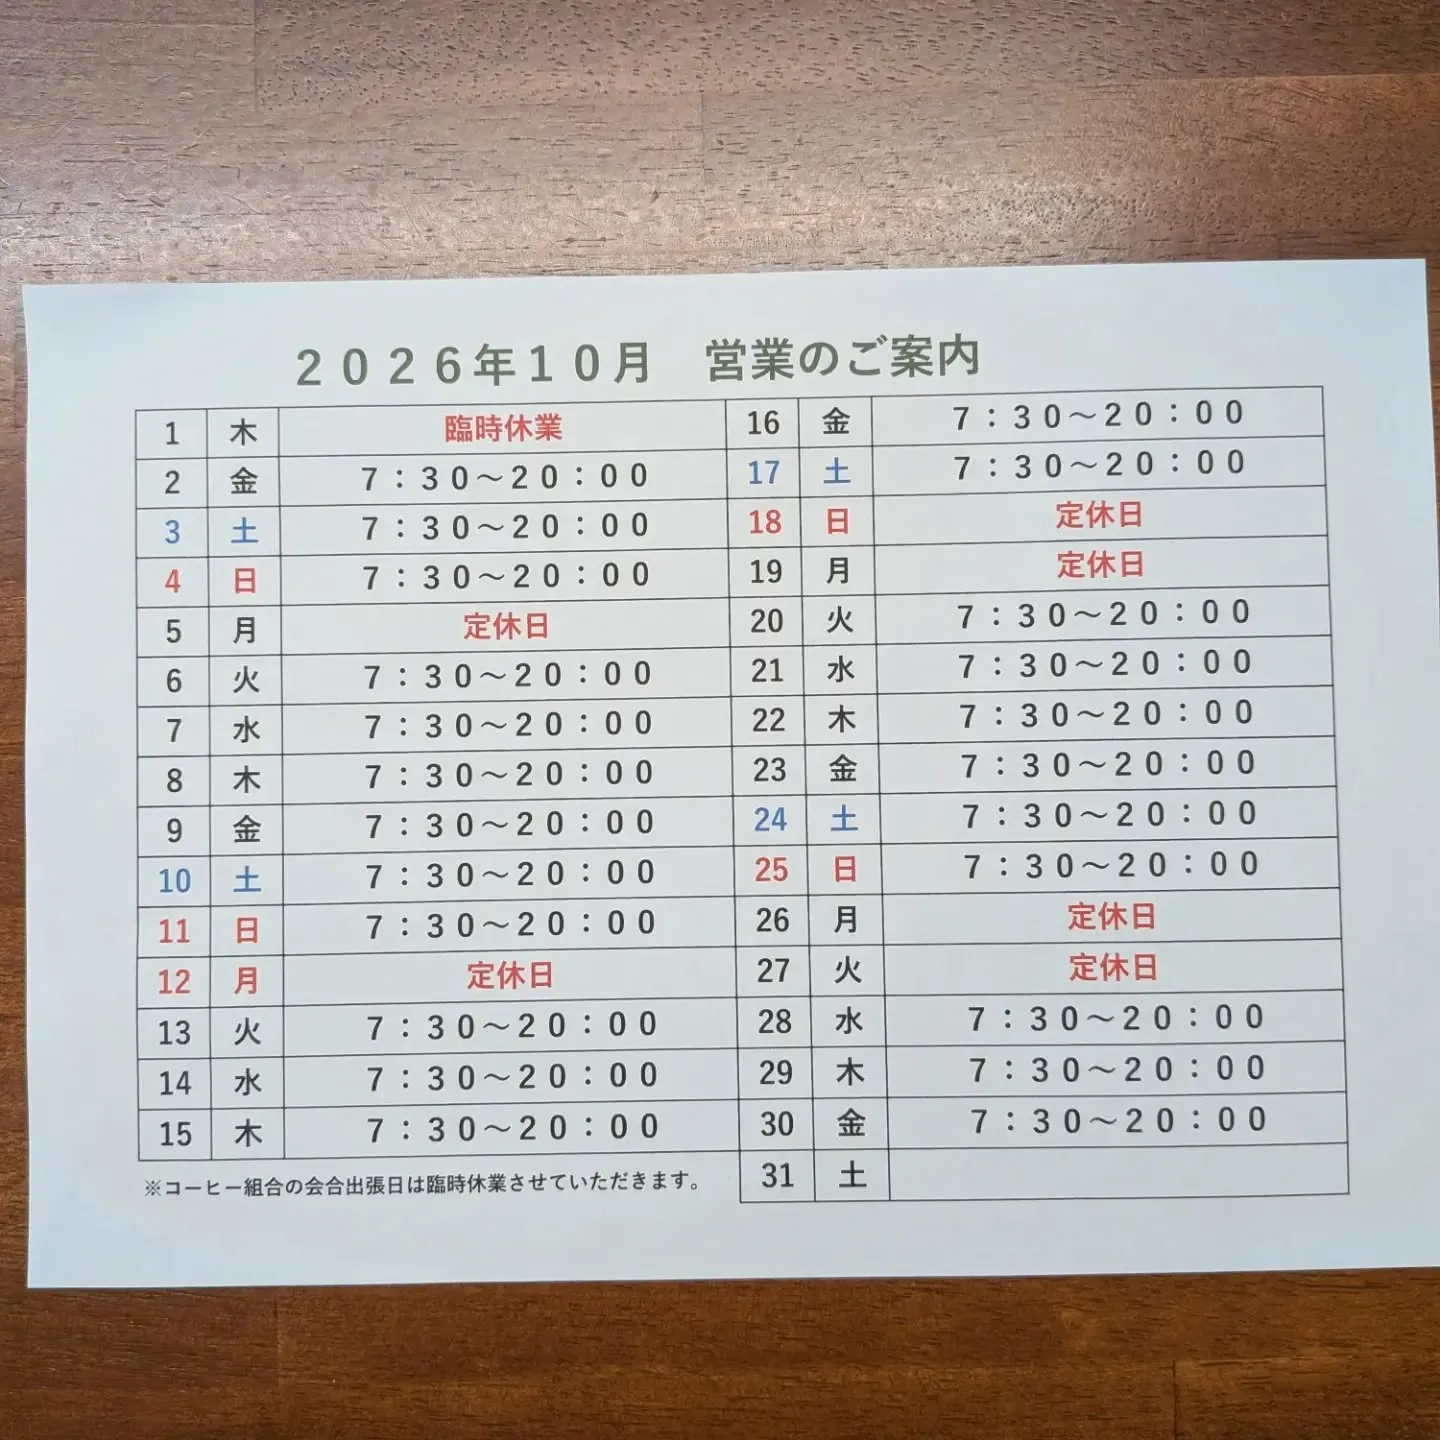 ２０２６年１０月　営業のご案内
1 木 臨時休業
2 金 ７：３０～２０：００
3 土 ７：３０～２０：００
4 日 ７：３０～２０：００
5 月 定休日
6 火 ７：３０～２０：００
7 水 ７：３０～２０：００
8 木 ７：３０～２０：００
9 金 ７：３０～２０：００
10 土 ７：３０～２０：００
11 日 ７：３０～２０：００
12 月 定休日
13 火 ７：３０～２０：００
14 水 ７：３０～２０：００
15 木 ７：３０～２０：００
16 金 ７：３０～２０：００
17 土 ７：３０～２０：００
18 日 定休日
19 月 定休日
20 火 ７：３０～２０：００
21 水 ７：３０～２０：００
22 木 ７：３０～２０：００
23 金 ７：３０～２０：００
24 土 ７：３０～２０：００
25 日 ７：３０～２０：００
26 月 定休日
27 火 定休日
28 水 ７：３０～２０：００
29 木 ７：３０～２０：００
30 金 ７：３０～２０：００
31 土
※コーヒー組合の会合出張日は臨時休業させていただきます。